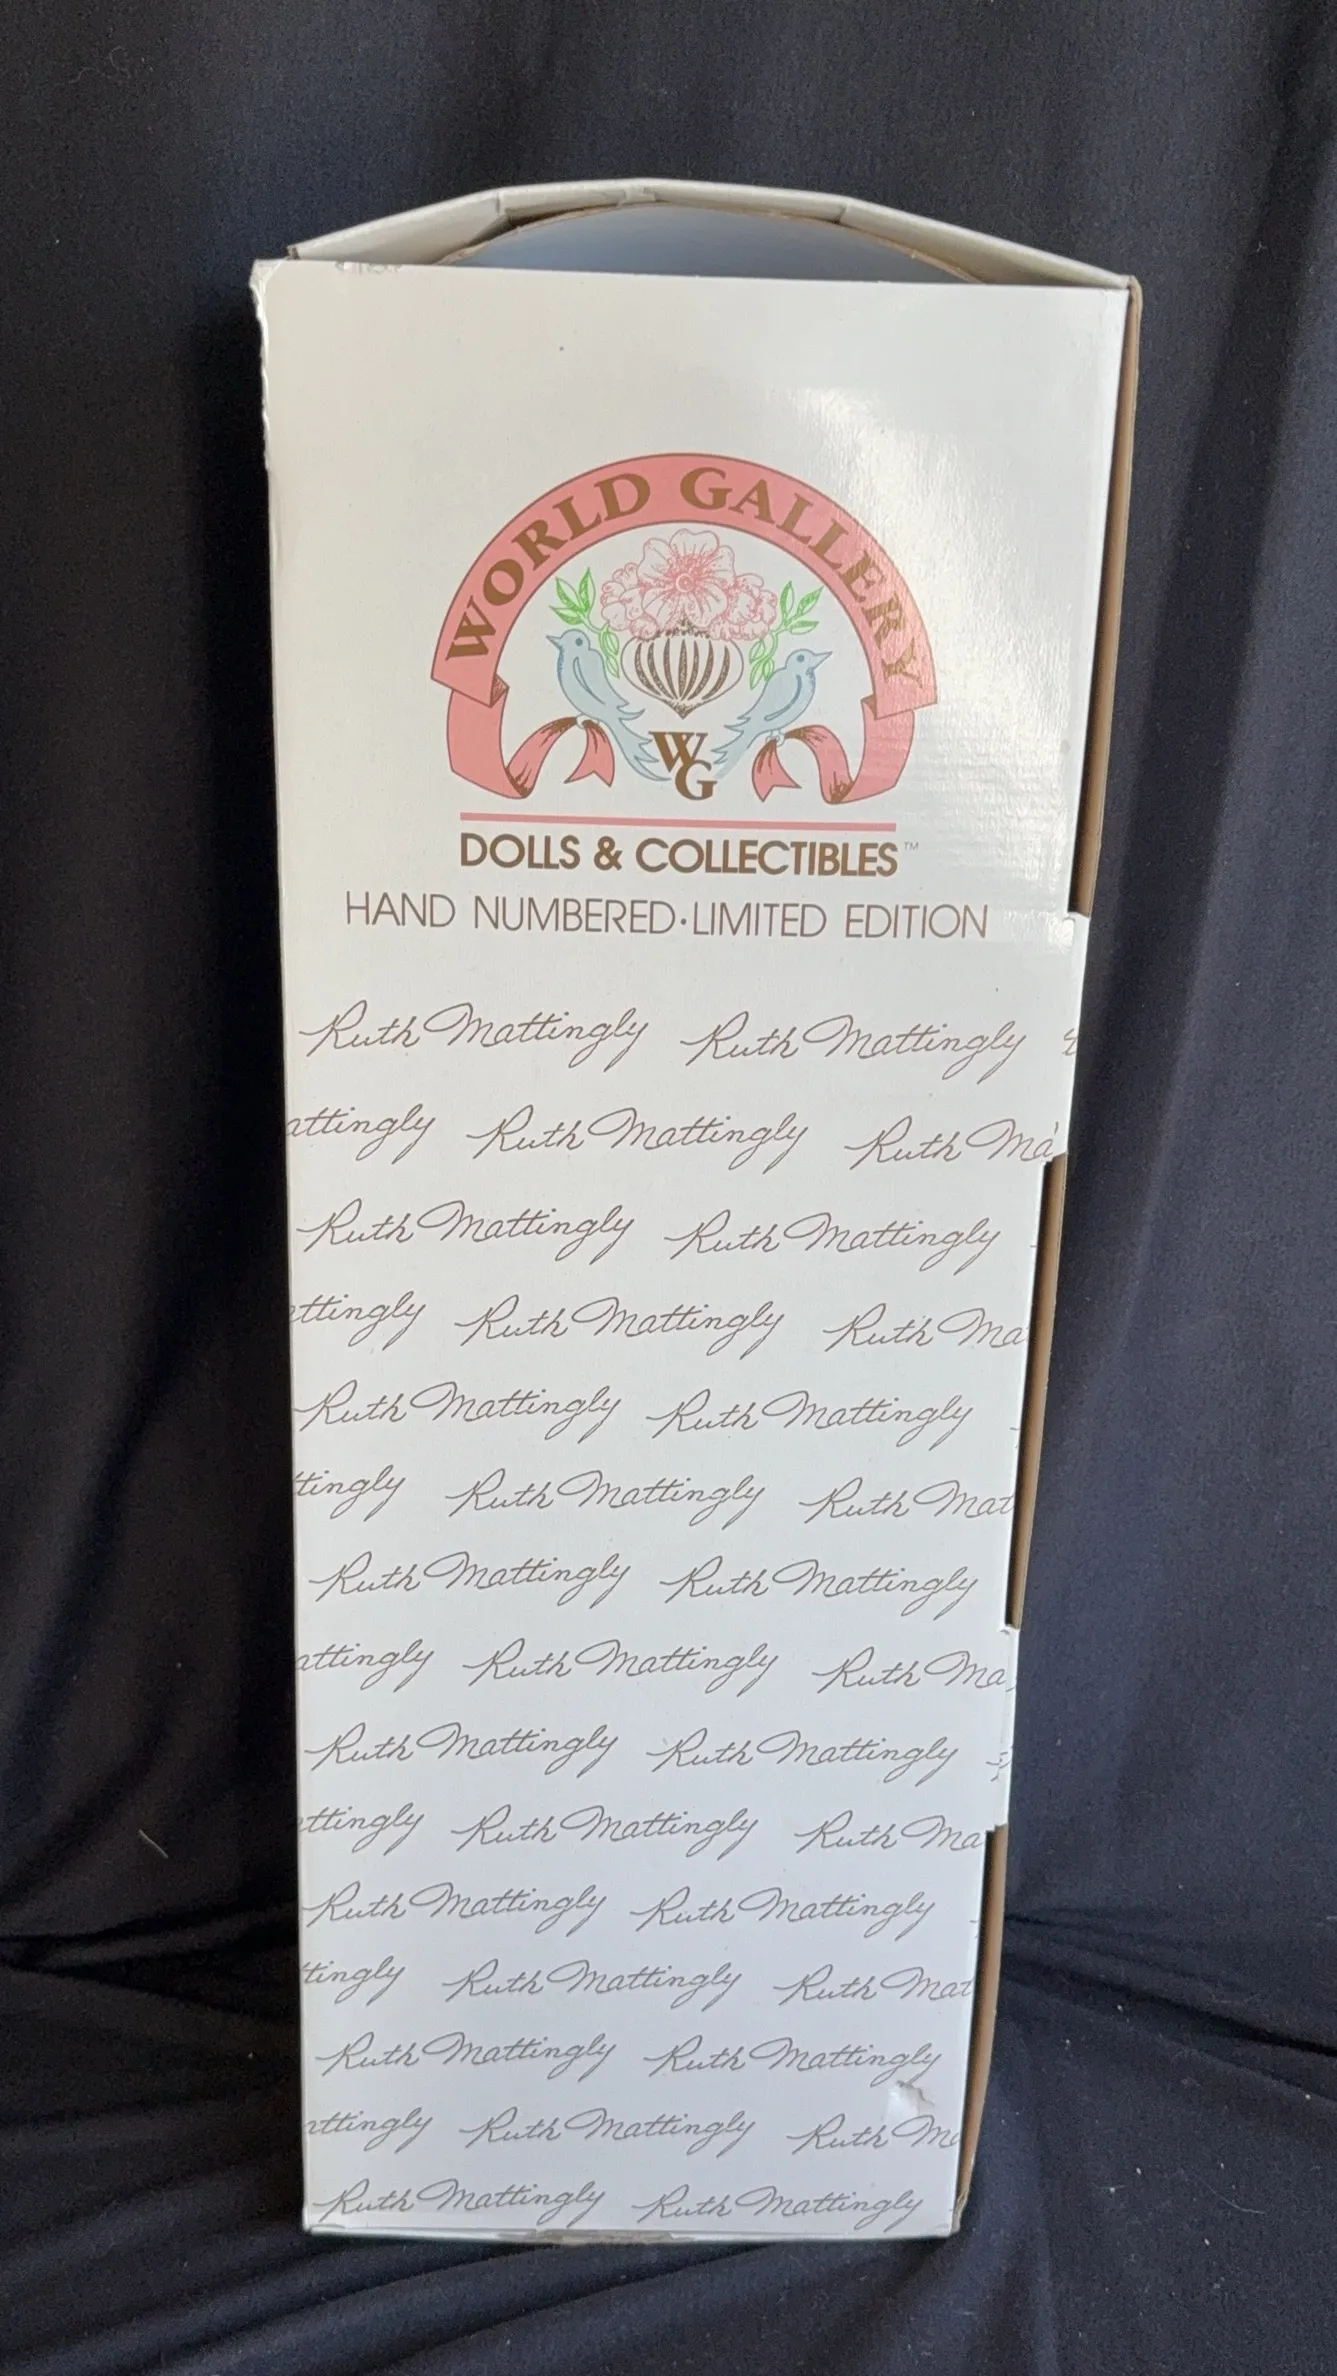 WORLD GALLERY
WG
DOLLS & COLLECTIBLES™
HAND NUMBERED·LIMITED EDITION
Ruth Mattingly Ruth Mattingly
attingly Ruth Mattingly Ruth Ma
Ruth Mattingly Ruth Mattingly
ttingly Ruth Mattingly Ruth Ma
Ruth Mattingly Ruth Mattingly
tingly Ruth Mattingly Ruth Mat
Ruth Mattingly Ruth Mattingly
attingly Ruth Mattingly Ruth Ma
Ruth Mattingly Ruth Mattingly
ttingly Ruth Mattingly Ruth Ma
Ruth Mattingly Ruth Mattingly
tingly Ruth Mattingly Ruth Mat
Ruth Mattingly Ruth Mattingly
attingly Ruth Mattingly Ruth M
Ruth Mattingly Ruth Mattingly